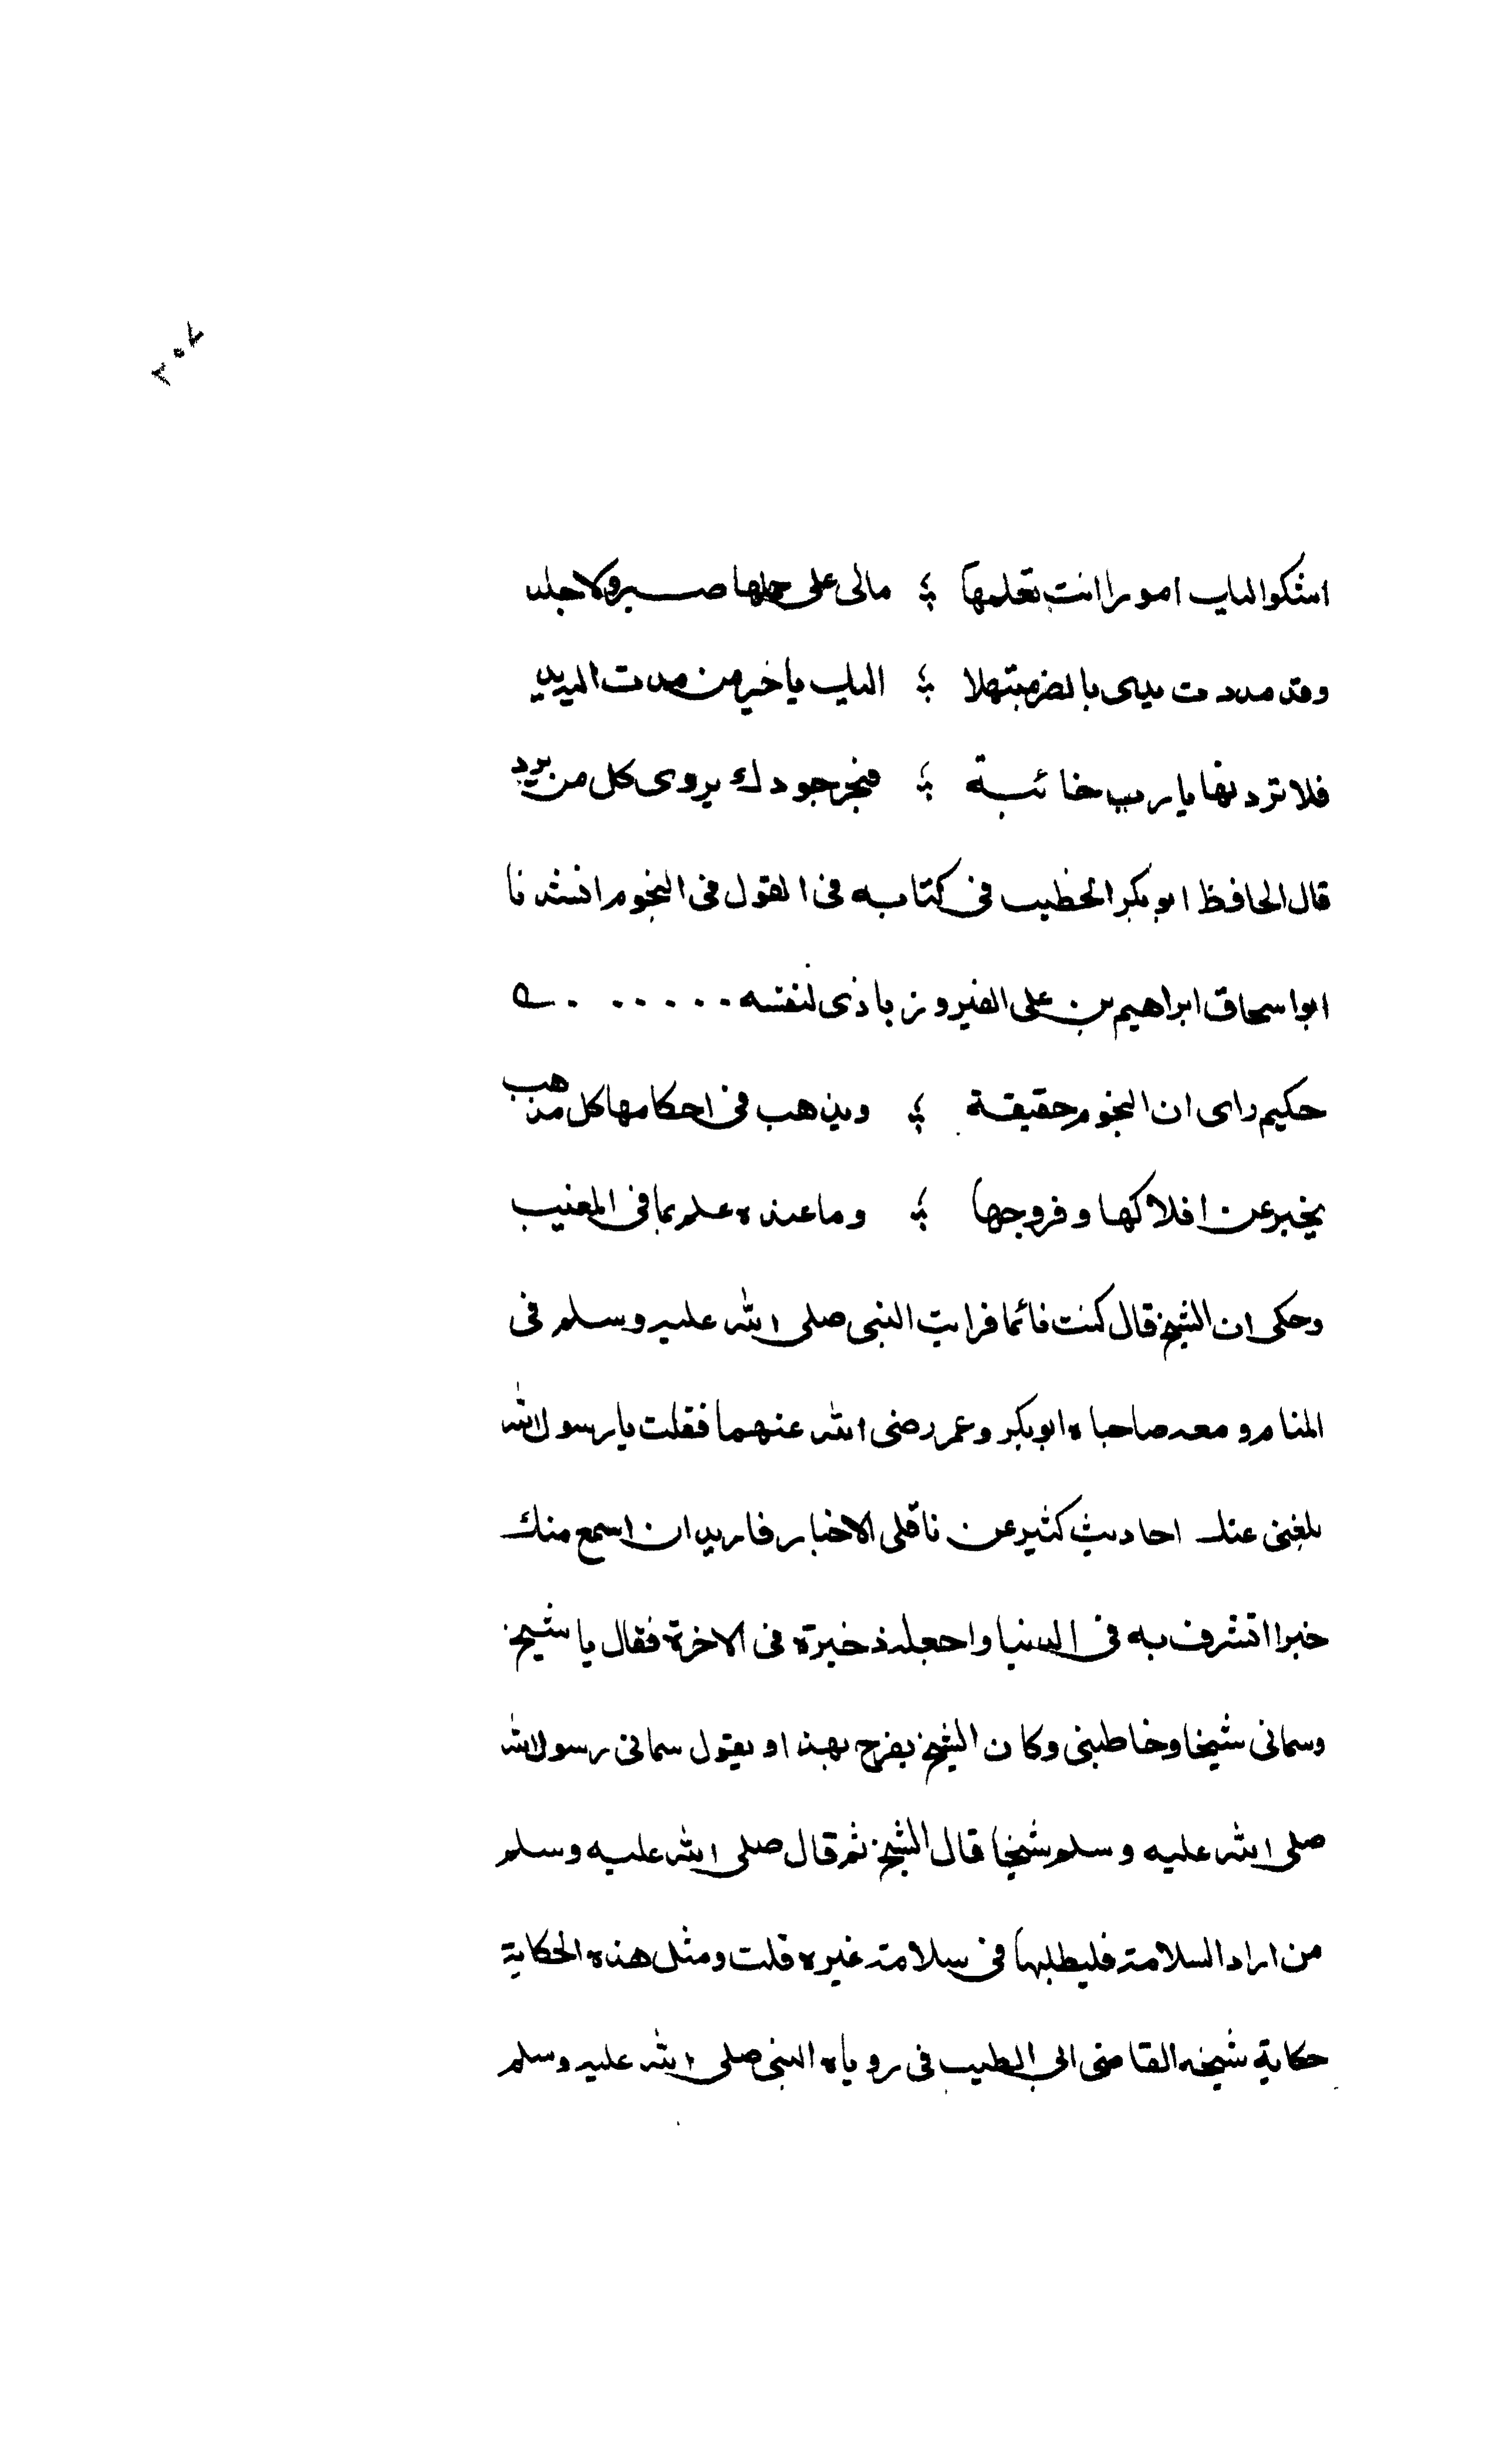 ٢٠٧
اشكو اليك امورا انت تعلمها ؛ مالى على حملها صبر ولا جلد
وقد مددت يدى بالضر مبتهلا ؛ اليك يا خير من مدت اليه يد
فلا تردنها يا رب خائبة ؛ فبحر جودك يروى كل من يرد
قال الحافظ ابو بكر الخطيب فى كتابه فى القول فى النجوم انشدنا
ابو اسحاق ابراهيم بن على الفيروزباذى لنفسه
حكيم راى ان النجوم حقيقة ؛ ويذهب فى احكامها كل مذهب
يخبر عن افلاكها وفروجها ؛ وما عنده علم بما فى المغيب
وحكى ان الشيخ قال كنت نائما فرايت النبى صلى الله عليه وسلم فى
المنام ومعه صاحباه ابو بكر وعمر رضى الله عنهما فقلت يا رسول الله
بلغنى عنك احاديث كثير عن ناقلى الاخبار فاريد ان اسمع منك
خبرا اتشرف به فى الدنيا واجعله ذخيرة فى الاخرة فقال يا شيخ
وسمانى شيخا وخاطبنى وكان الشيخ يفرح بهذا ويقول سمانى رسول الله
صلى الله عليه وسلم شيخا قال الشيخ ثم قال صلى الله عليه وسلم
من اراد السلامة فليطلبها فى سلامة غيره قلت ومثل هذه الحكاية
حكاية شيخه القاضى ابى الطيب فى روياه النبى صلى الله عليه وسلم